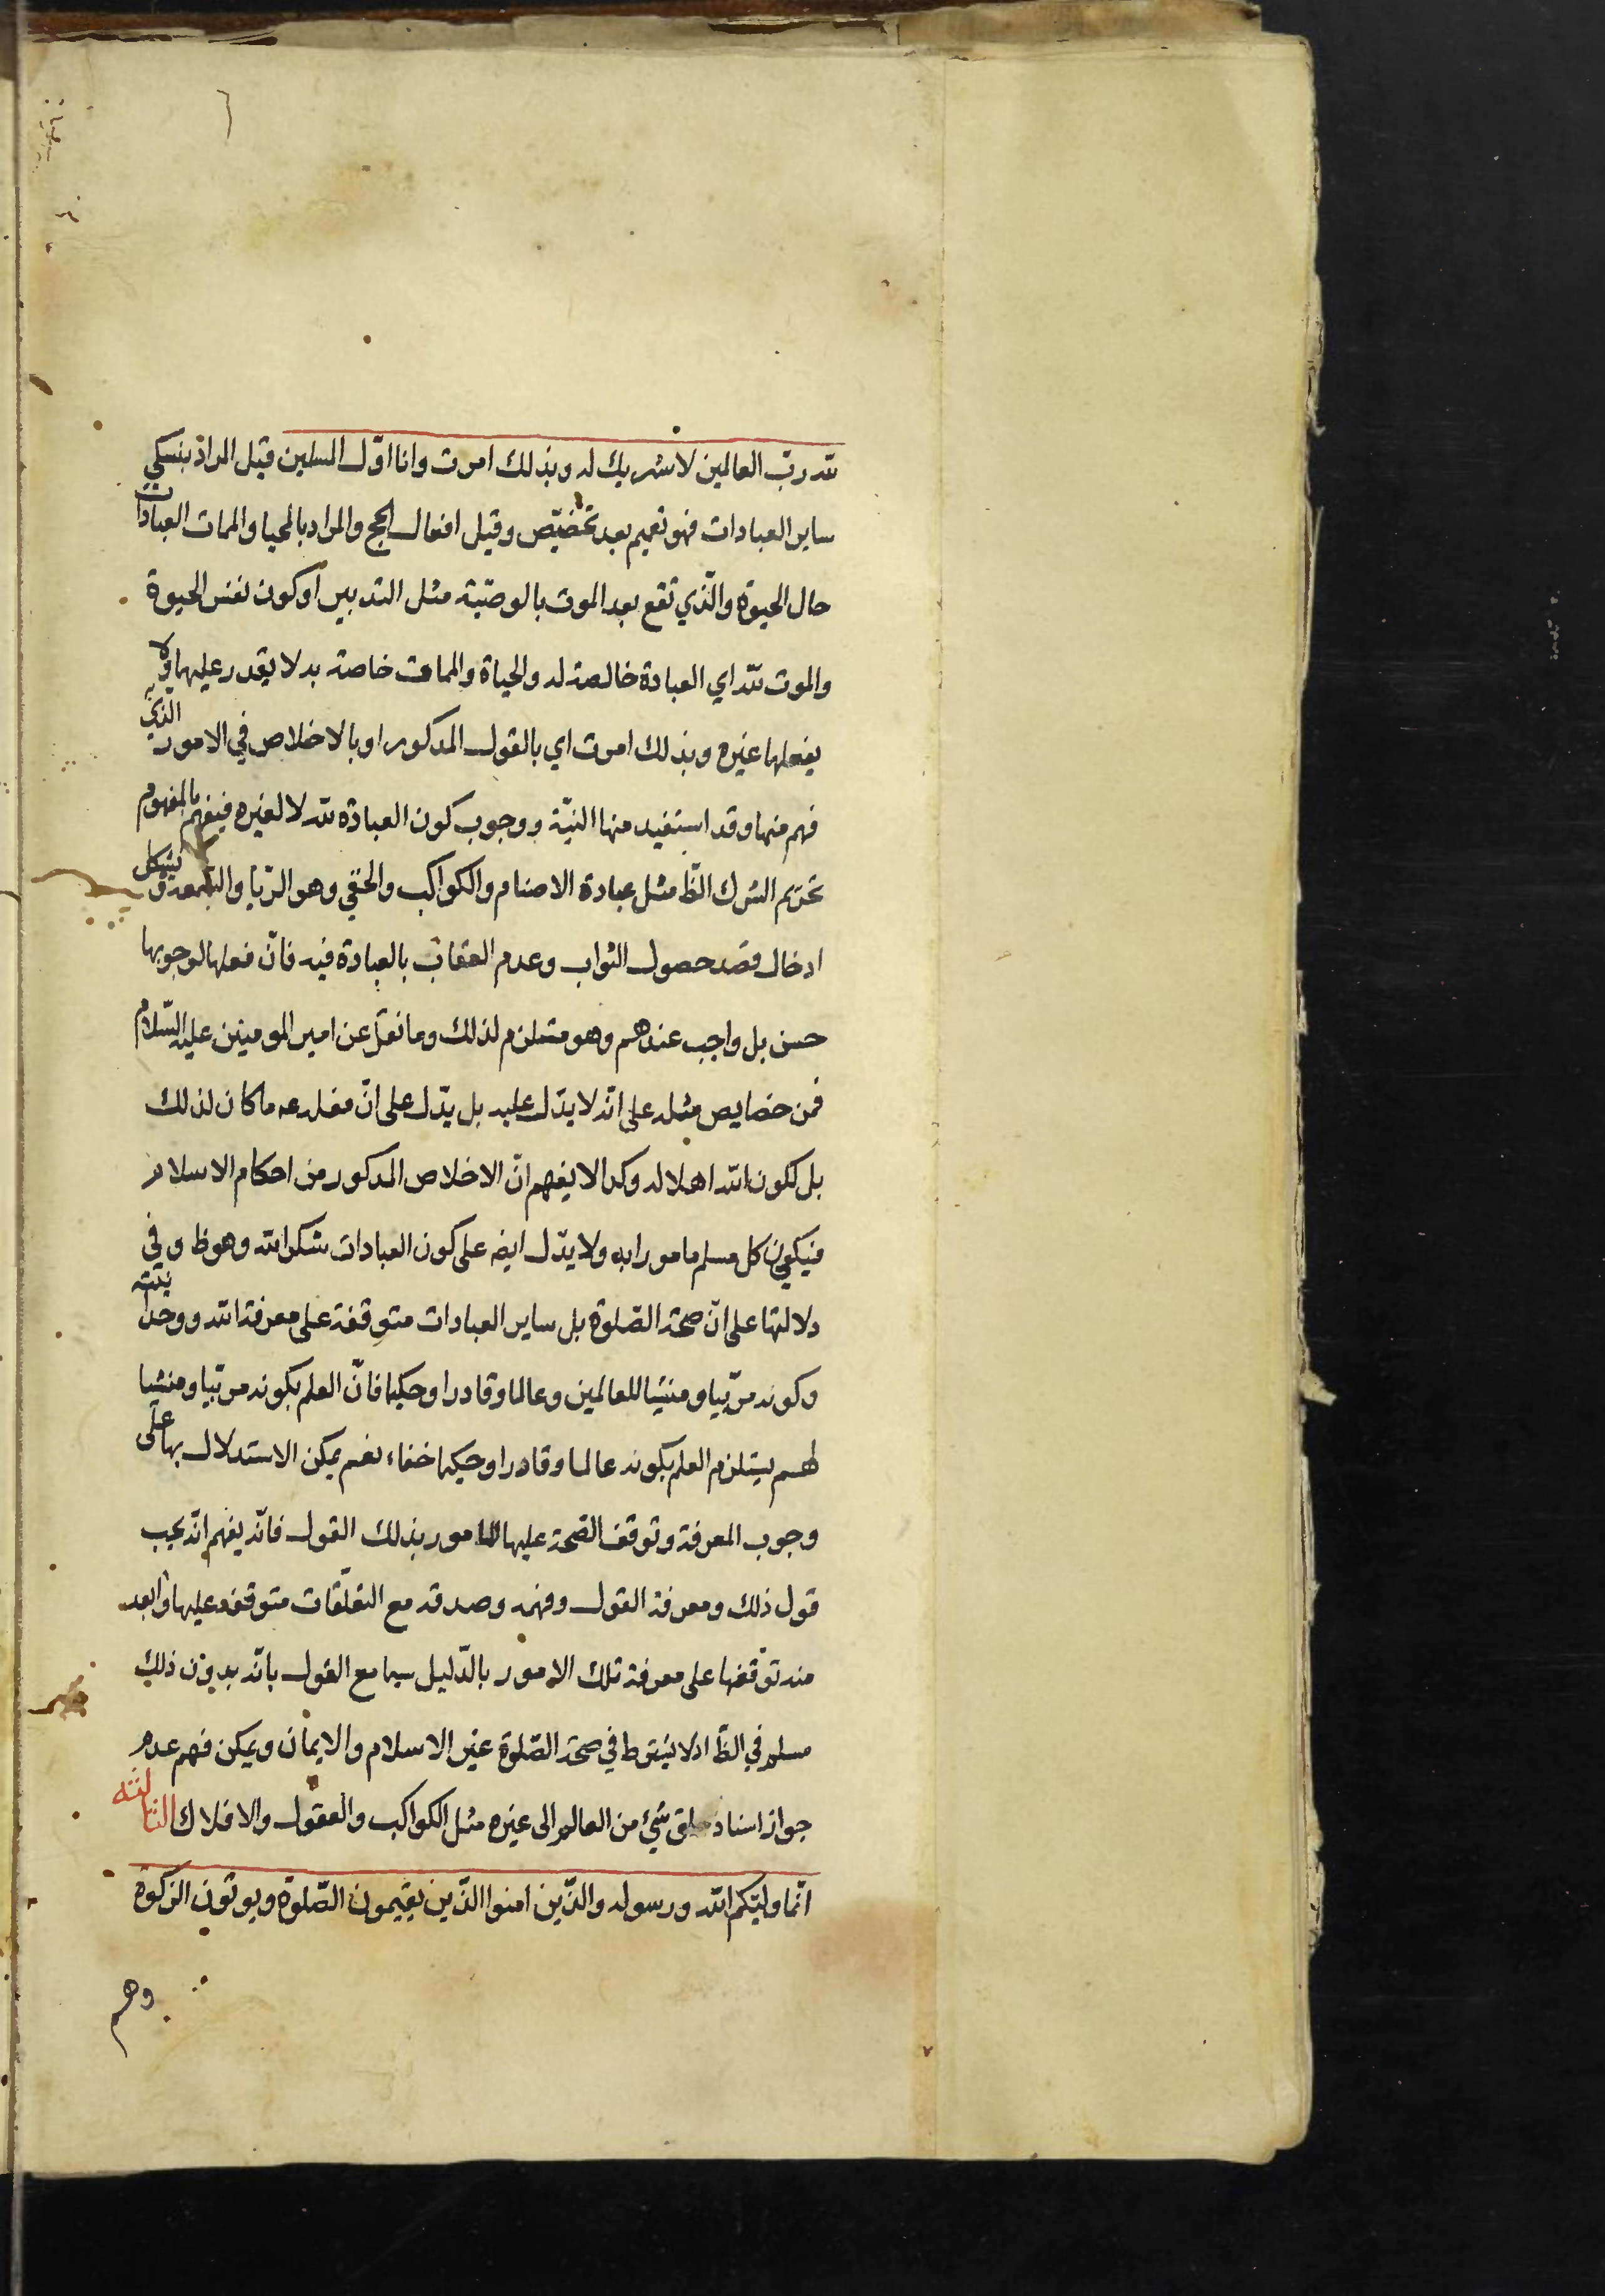 لله رب العالمين لا شريك له وبذلك امرت وانا اوّل المسلمين قيل المراد بنسكي
ساير العبادات فهو تعميم بعد تخصيص وقيل افعال الحج والمراد بالمحيا والممات العبادات
حال الحيوة والّذي تقع بعد الموت بالوصيّة مثل التدبير او كون نفس الحيوة
والموت لله اي العبادة خالصة له والحياة والممات خاصة به لا يقدر عليها ولا
يفعلها غيره وبذلك امرت اي بالقول المذكور او بالاخلاص في الامور الذي
فهم منها وقد استفيد منها النيّة ووجوب كون العبادة لله لا لغيره فيفهم بالمفهوم
تحريم الشرك الظ مثل عبادة الاصنام والكواكب والخفي وهو الريا والسمعة ويشكل
ادخال قصد حصول الثواب وعدم العقاب بالعبادة فيه فانّ فعلها لوجوبها
حسن بل واجب عندهم وهو مستلزم لذلك وما نقل عن امير المومنين عليه السّلام
فمن خصايص مثله على انّه لا يدّل عليه بل يدّل على انّ فعله عه ما كان لذلك
بل لكون الله اهلا له وكذا لا يفهم انّ الاخلاص المذكور من احكام الاسلام
فيكون كل مسلم مامورا به ولا يدّل ايضه على كون العبادات شكرا لله وهو ظ وفي
دلالتها على انّ صحة الصّلوة بل ساير العبادات متوقفة على معرفة الله ووحدانيّته
وكونه مربّيا ومنشيا للعالمين وعالما وقادرا وحكيما فانّ العلم بكونه مربّيا ومنشيا
لهم يستلزم العلم بكونه عالما وقادرا وحكيما خفاء نعم يمكن الاستدلال بها على
وجوب المعرفة وتوقف الصّحة عليها للمامور بذلك القول فانّه يفهم انّه يجب
قول ذلك ومعرفة القول وفهمه وصدقه مع التعلّقات متوقفة عليها وابعد
منه توقّفها على معرفة تلك الامور بالدّليل سيما مع القول بانّه بدون ذلك
مسلم في الظّ اذ لا يشترط في صحة الصّلوة غير الاسلام والايمان ويمكن فهم عدم
جواز اسناد خلق شيء من العالم الى غيره مثل الكواكب والعقول والافلاك الثالثه
انّما وليّكم الله ورسوله والذّين امنوا الذّين يقيمون الصّلوة ويوتون الزكوة
وهم